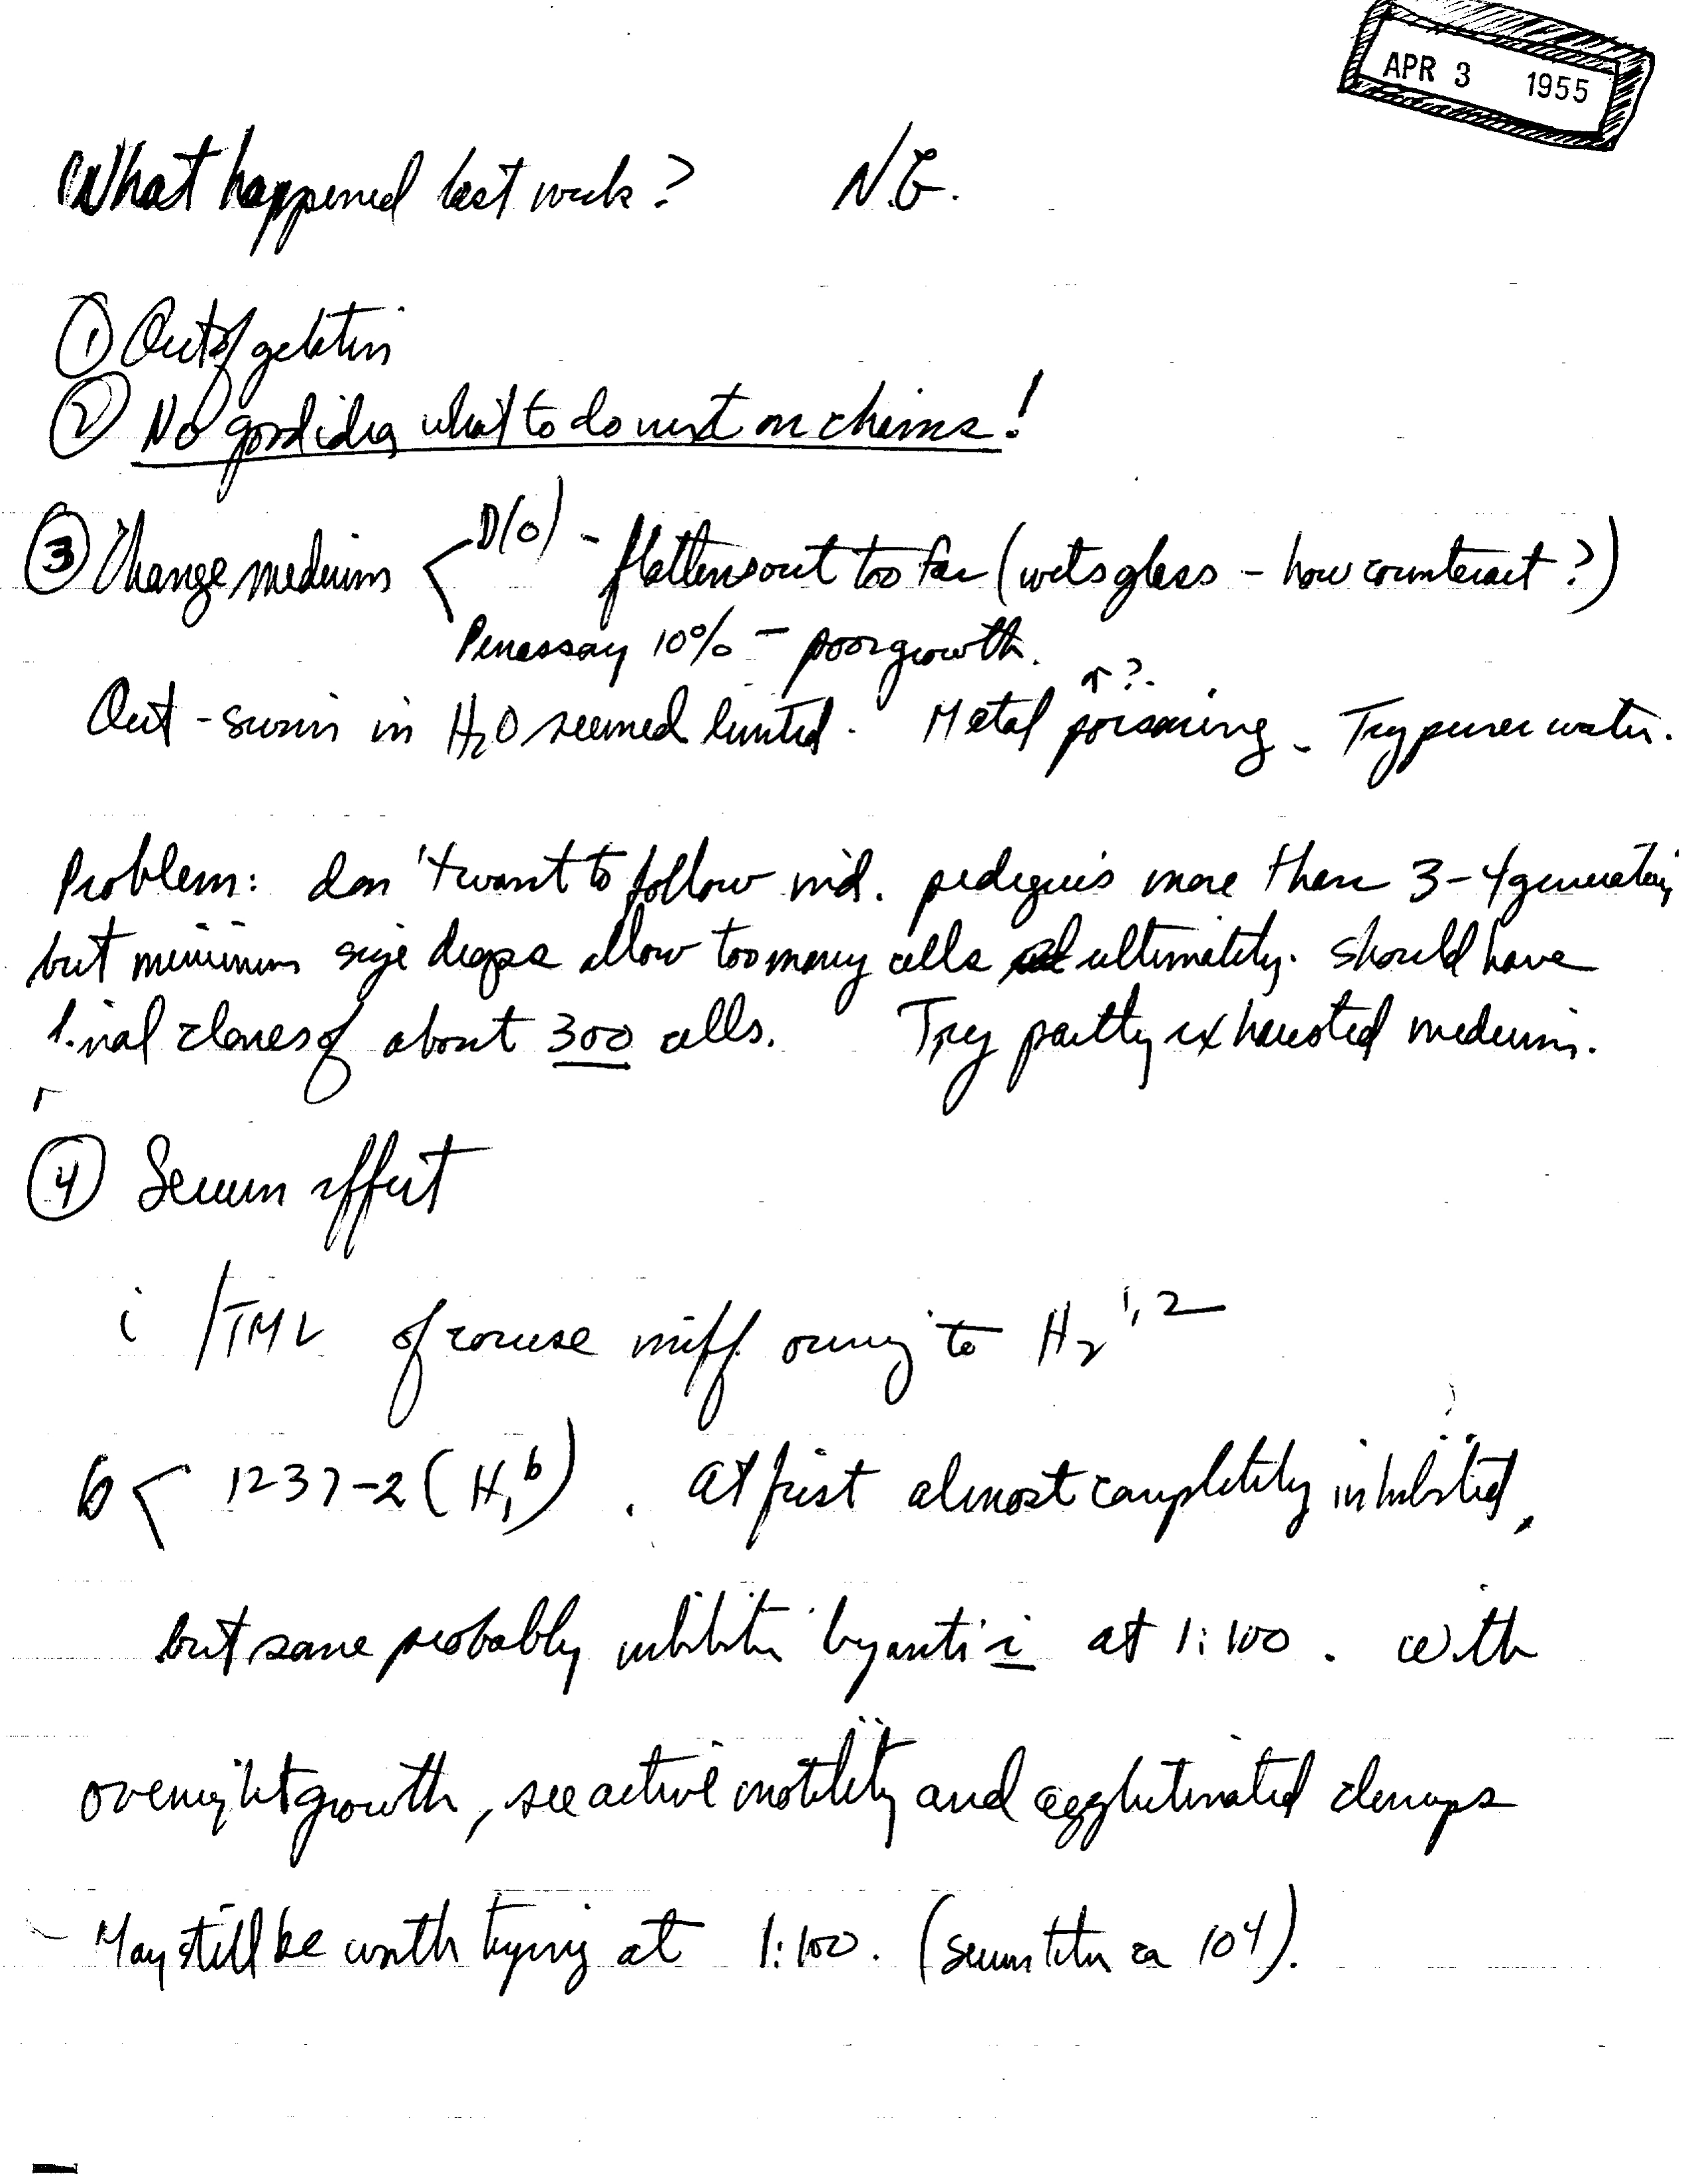 APR 3 1955
What happened last week? N.G.
① Out of gelatin
② No good idea what to do next on chims!
③ Change medium < D(0) - flattens out too far (wets glass - how counteract?)
Penassay 10% - poor growth.
↑?
Out-swim in H2O seemed limited. Metal poisoning - Try purer water.
Problem: don't want to follow ind. pedigrees more than 3-4 generations
but minimum size drops allow too many cells ultimately. Should have
final clones of about 300 cells. Try partly exhausted medium.
④ Serum effect
i /TML of course ineff. owing to H2 1,2
b < 1237-2 (H1 b). At first almost completely inhibited,
but same probably by anti i at 1:100. With
overnight growth, see active motility and agglutinated clumps
May still be worth trying at 1:100. (serum titer ca 10⁴).